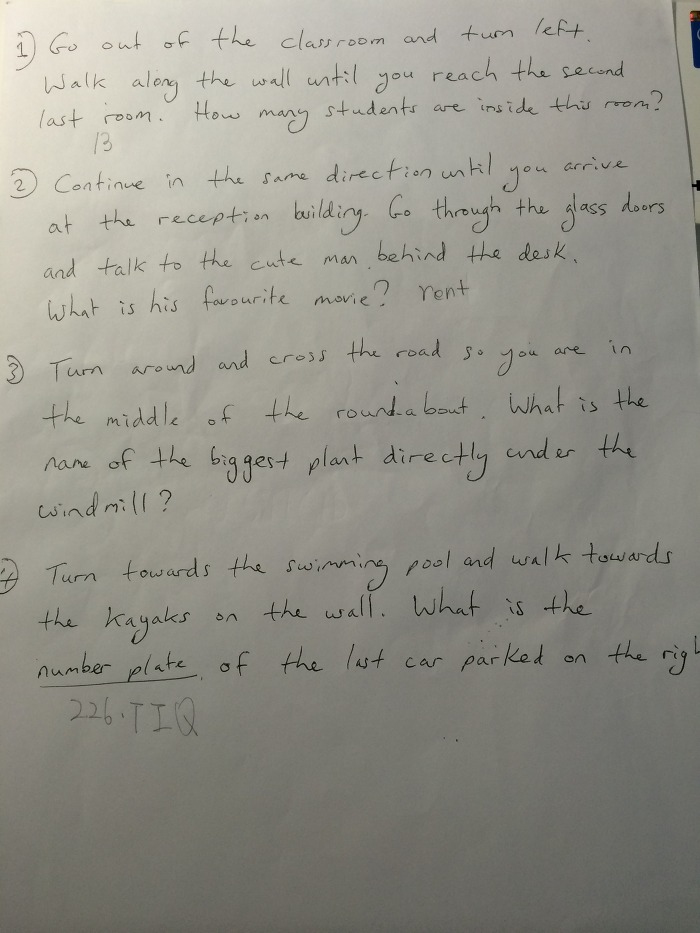 1) Go out of the classroom and turn left.
Walk along the wall until you reach the second
last room. How many students are inside this room?
13
2) Continue in the same direction until you arrive
at the reception building. Go through the glass doors
and talk to the cute man behind the desk.
What is his favourite movie? rent
3) Turn around and cross the road so you are in
the middle of the round-about. What is the
name of the biggest plant directly under the
windmill?
4) Turn towards the swimming pool and walk towards
the kayaks on the wall. What is the
number plate of the last car parked on the righ
226.TIQ